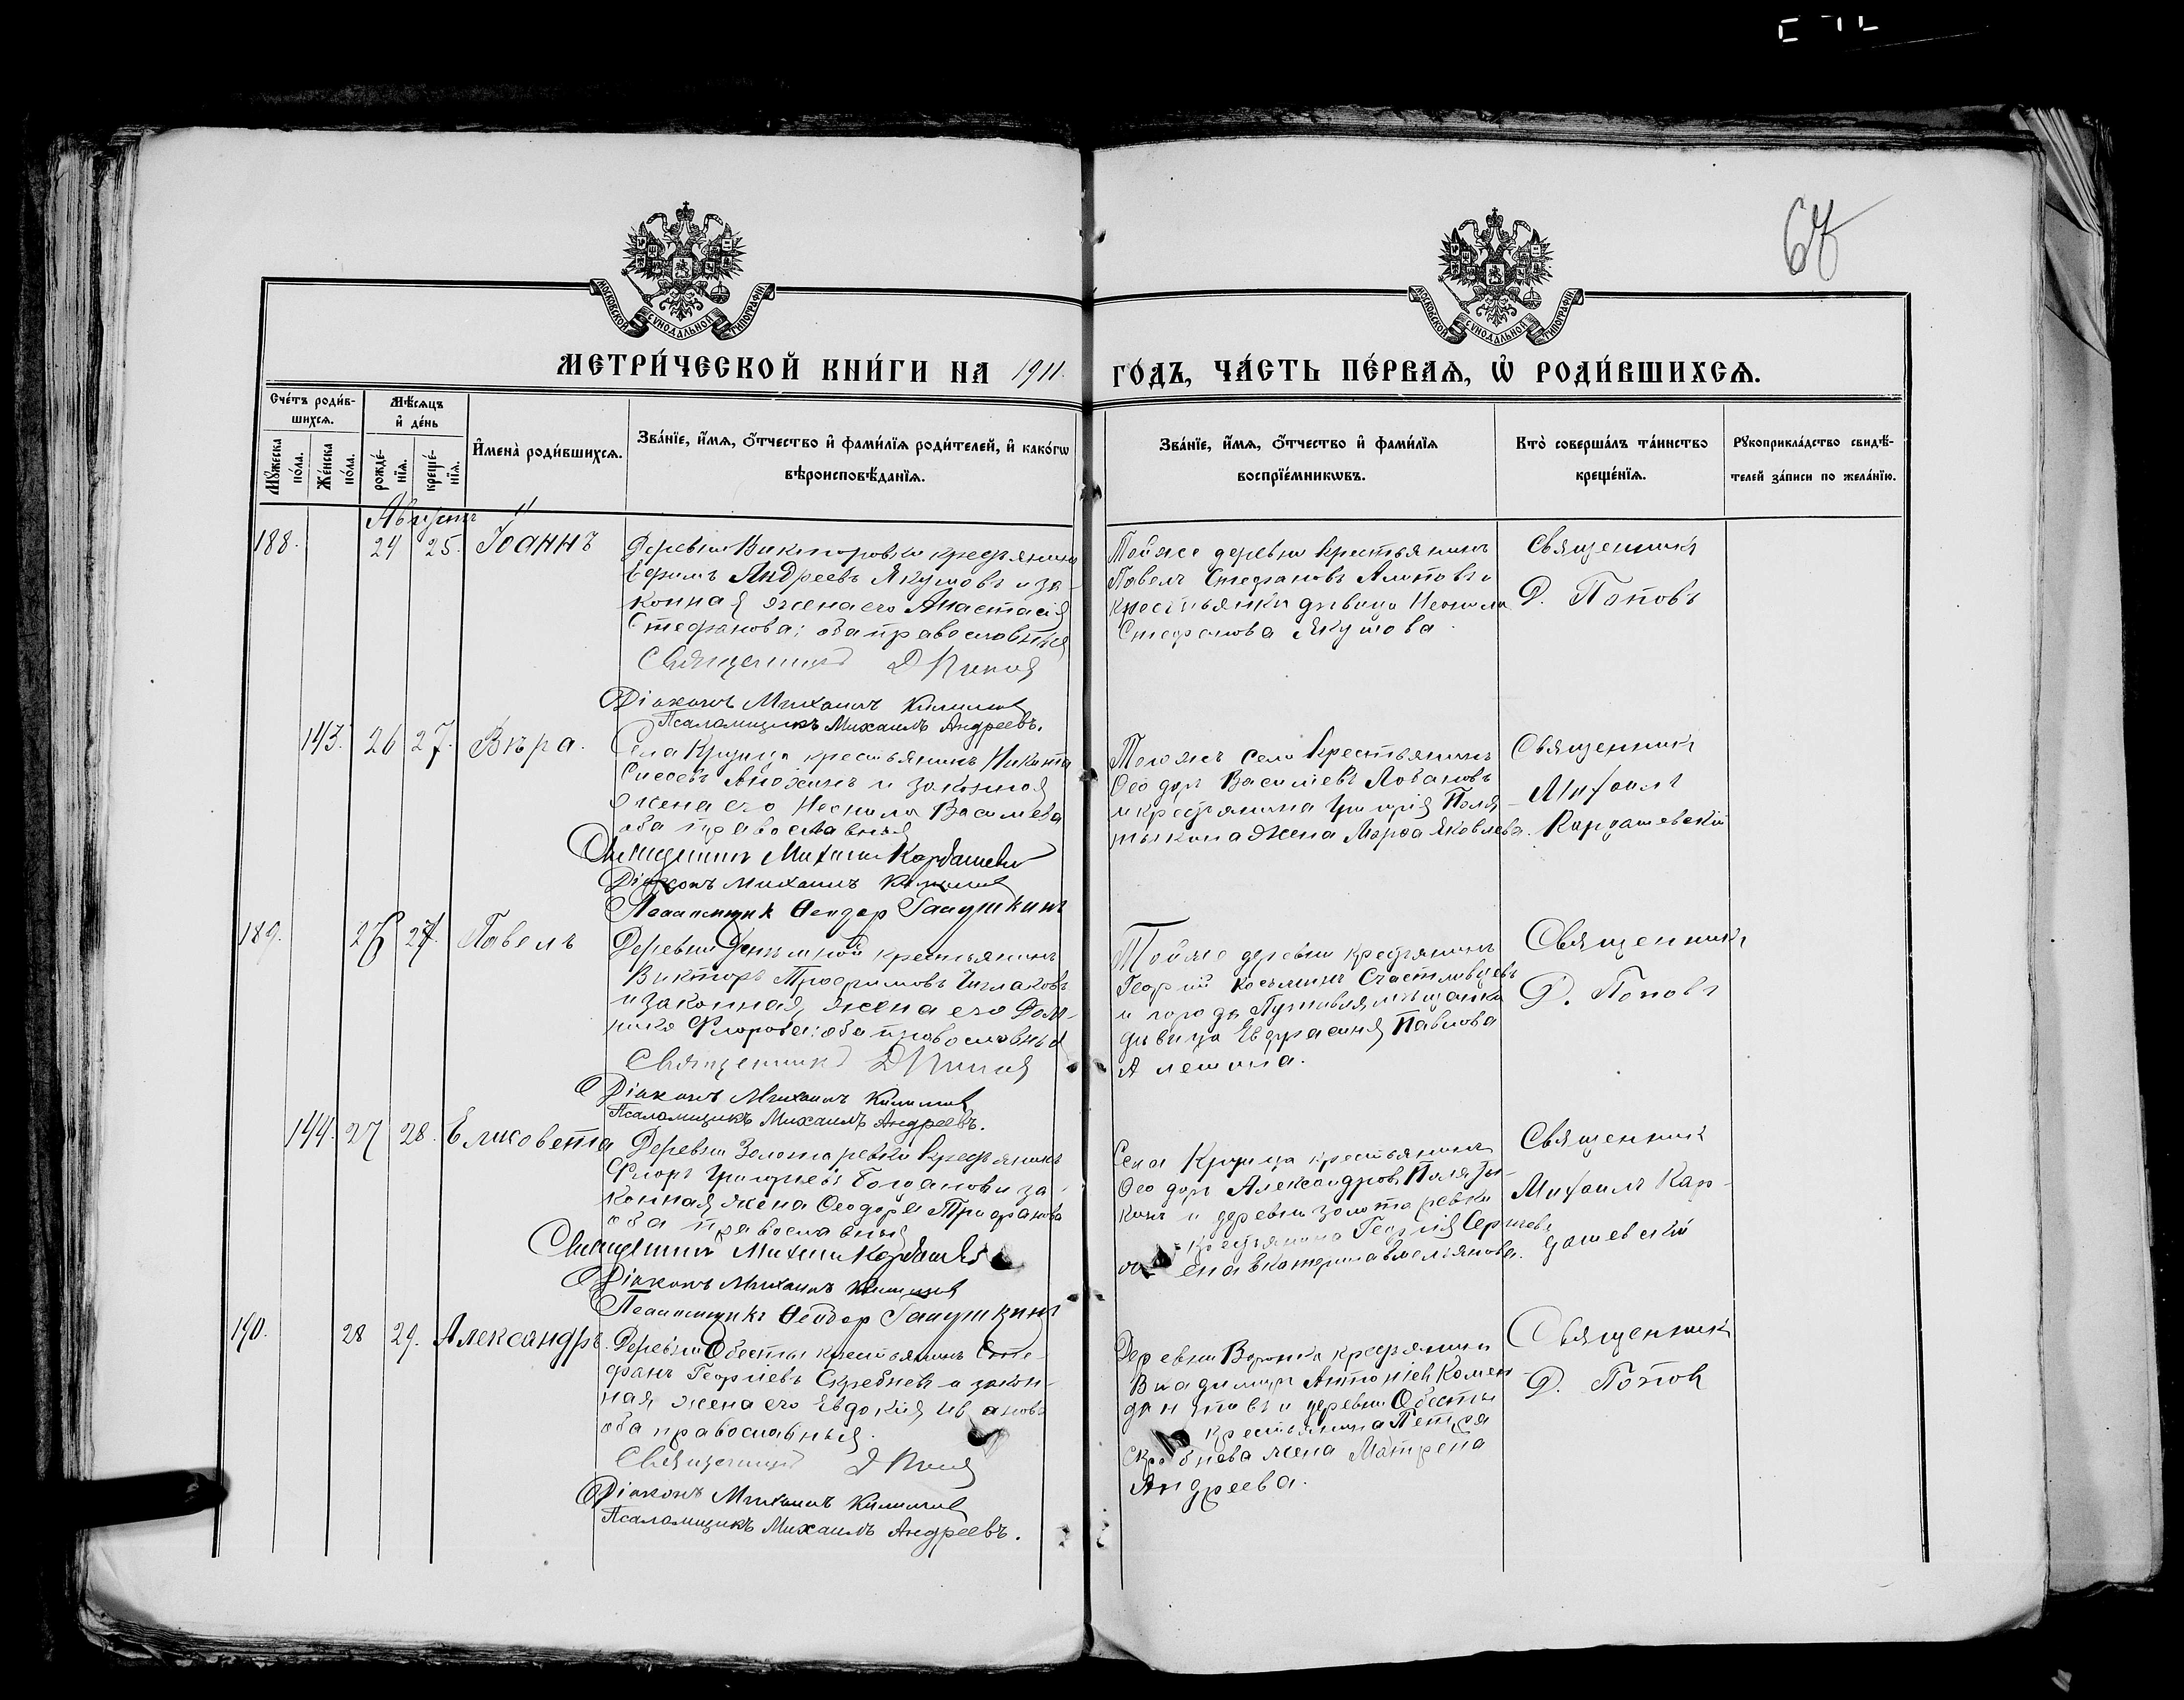 67
МОСКОВСКОЙ СѴНОДАЛЬНОЙ ТИПОГРАФІИ
МОСКОВСКОЙ СѴНОДАЛЬНОЙ ТИПОГРАФІИ
МЕТРИ́ЧЕСКОЙ КНИ́ГИ НА 1911 ГО́ДЪ, ЧА́СТЬ ПЕ́РВАѦ, Ѡ҆ РОДИ́ВШИХСѦ.
Сче́тъ роди́вшихсѧ.
Мꙋ́жеска по́ла.
Же́нска по́ла.
Мѣ́сѧцъ и҆ де́нь
рожде́нїѧ.
креще́нїѧ.
И҆мена̀ роди́вшихсѧ.
Зва́нїе, и҆́мѧ, ѻ҆́тчество и҆ фами́лїѧ роди́телей, и҆ како́гѡ
вѣроисповѣ́данїѧ.
Зва́нїе, и҆́мѧ, ѻ҆́тчество и҆ фами́лїѧ
воспрїе́мникѡвъ.
Кто̀ соверша́лъ та́инство
креще́нїѧ.
Рꙋкоприкла́дство свидѣ́-
телей за́писи по жела́нїю.
Августъ
188. 24 25. Іоаннъ
Деревни Викторовки крестьянинъ
Ефимъ Андреевъ Якушовъ и за-
конная жена его Анастасія
Стефанова; оба православныя
Священникъ Д Попов
Діаконъ Михаилъ
Псаломщикъ Михаилъ Андреевъ.
Тойже деревни крестьянинъ
Павелъ Стефановъ и
крестьянки дѣвица Неонила
Стефанова Якушова
Священникъ
Д. Поповъ
143. 26 27. Вѣра.
Села крестьянинъ Никита
и законная
жена его Неонила Васильева
оба православныя
Священникъ Михаилъ Кардашевскій
Діаконъ Михаилъ
Псаломщикъ Ѳеодор Галушкинъ
Тогожъ села крестьянинъ
Ѳеодоръ Васильевъ Лобановъ
и крестьянина Григорія Поля-
тыкина жена Марѳа Яковлева.
Священникъ
Михаилъ
Кардашевскій
189. 26 27. Павелъ
Деревни крестьянинъ
Викторъ Трофимовъ
и законная жена его Дом-
ника Флорова; оба православныя
Священникъ Д Попов
Діаконъ Михаилъ
Псаломщикъ Михаилъ Андреевъ.
Тойже деревни крестьянинъ
Георгій Косьминъ Счастливцевъ
и города Путивля мѣщанка
дѣвица Евфрасинія Павлова
Алешина.
Священникъ
Д. Поповъ
144. 27 28. Елисовета
Деревни Золотаревки крестьянинъ
Флоръ Григорьевъ и за-
конная жена Ѳеодора Трифанова
оба православныя
Священникъ Михаилъ Кардашевскій
Діаконъ Михаилъ
Псаломщикъ Ѳеодор Галушкинъ
Села крестьянинъ
Ѳеодоръ Александровъ Поляты-
кинъ и деревни Золотаревки
крестьянина Георгія Сергѣева
Священникъ
Михаилъ Кар-
дашевскій
190. 28 29. Александръ.
Деревни Обесты крестьянинъ Сте-
фанъ Георгіевъ Скребневъ и закон-
ная жена его Евдокія Иванова
оба православныя.
Священникъ Д Попов
Діаконъ Михаилъ
Псаломщикъ Михаилъ Андреевъ.
Деревни крестьянинъ
Владимиръ Антоніевъ Комен-
дантовъ и деревни Обесты
крестьянина Петра
Скребнева жена Матрена
Андреева.
Священникъ
Д. Попов